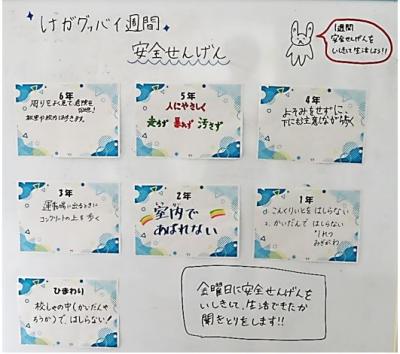 けがグッバイ週間
安全せんげん
1週間
安全せんげんを
いしきして生活しよう!!
6年
周りをよく見て危険を
回避!
5年
人にやさしく
走らず 暴れず 汚さず
4年
よそみをせずに、
下にも注意しながら歩く
3年
運動場に出るときに
コンクリートの上を歩く
2年
室内で
あばれない
1年
1.こんくりいとを はしらない
2.かいだんで はしらない
1れつ
みぎがわ
ひまわり
校しゃの中(かいだんや
ろうか)で、はしらない!
金曜日に安全せんげんを
いしきして、生活できたか
聞きとりをします!!